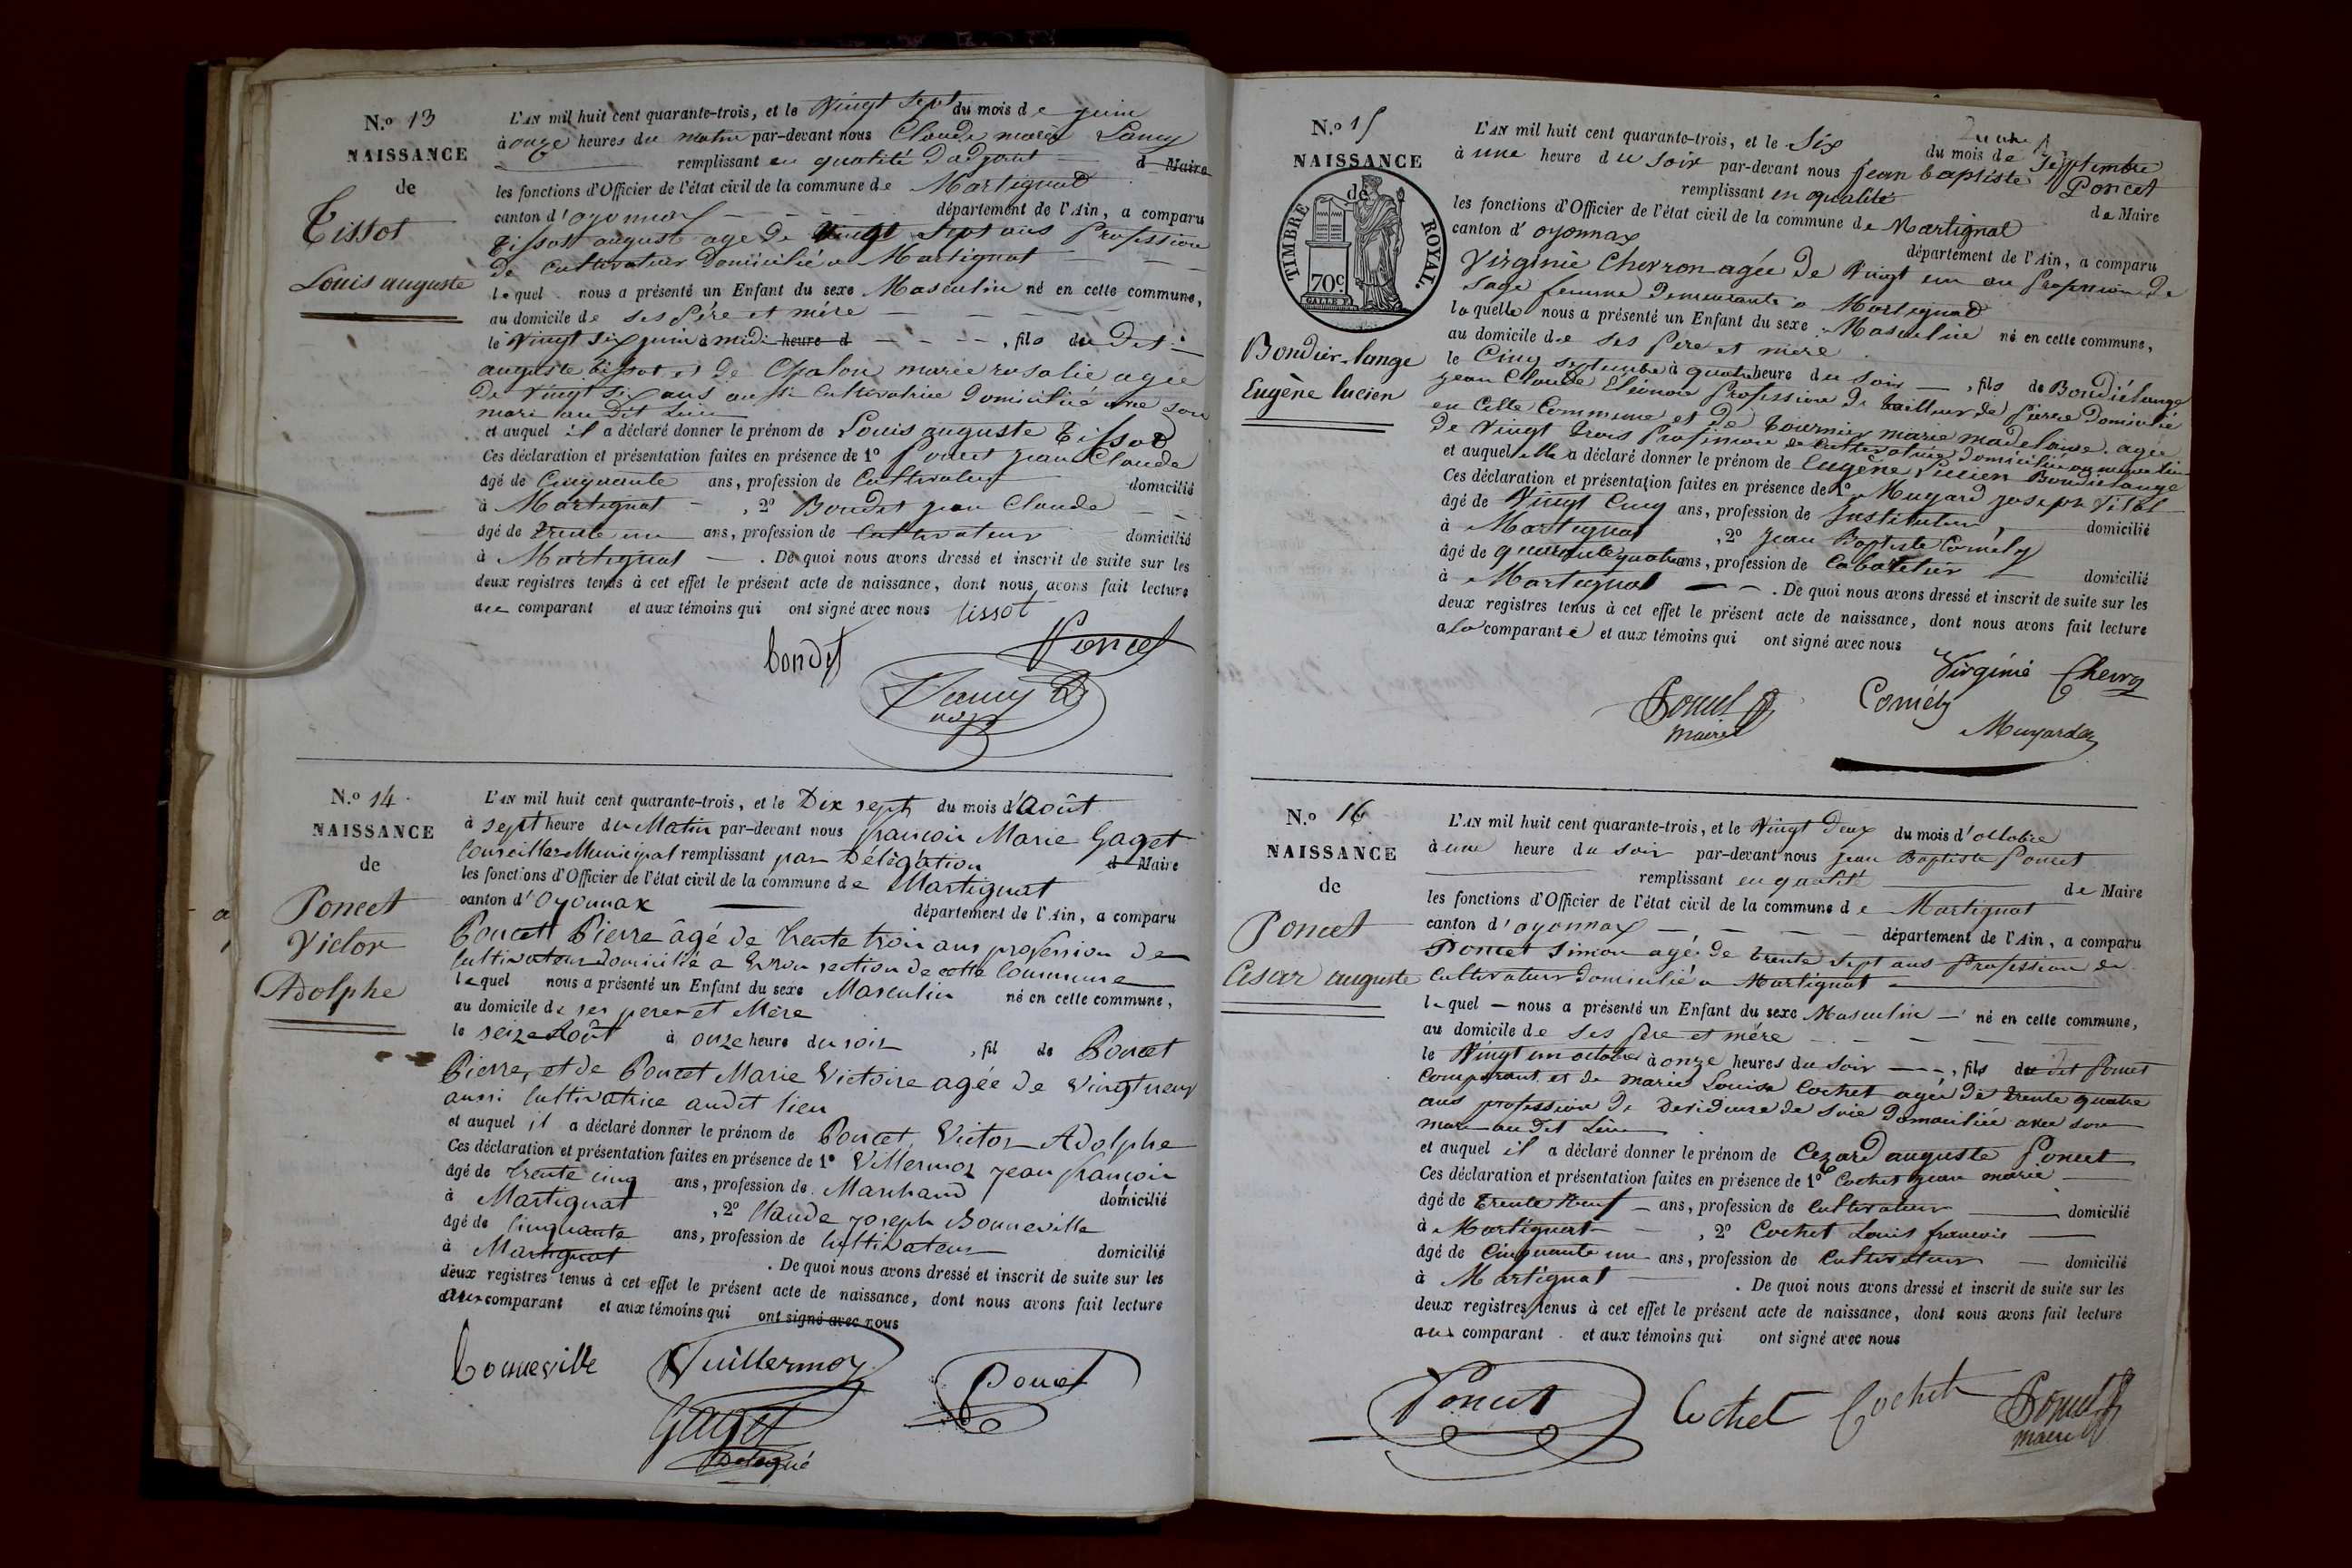 N.º 13
NAISSANCE
de
Tissot
Louis auguste
L'AN mil huit cent quarante-trois, et le Vingt Sept du mois de juin
à onze heures du matin par-devant nous Claude marie
remplissant en qualité d'adjoint d Maire
les fonctions d'Officier de l'état civil de la commune de Martignat
canton d'oyonnax département de l'Ain, a comparu
tissot auguste agé de Vingt Sept ans Profession
de Cultivateur domicilié a Martignat
lequel nous a présenté un Enfant du sexe Masculin né en cette commune,
au domicile de ses Père et mère
le Vingt six juin à midi heure d , fils du dit
auguste tissot et de Chalon marie rosalie agée
de Vingt six ans aussi Cultivatrice domiciliée avec son
mari au dit Lieu
et auquel il a déclaré donner le prénom de Louis auguste tissot
Ces déclaration et présentation faites en présence de 1º Poncet jean Claude
âgé de Cinquante ans, profession de Cultivateur domicilié
à Martignat , 2º Bondet jean Claude
âgé de trente un ans, profession de Cultivateur domicilié
à Martignat . De quoi nous avons dressé et inscrit de suite sur les
deux registres tenus à cet effet le présent acte de naissance, dont nous avons fait lecture
au comparant et aux témoins qui ont signé avec nous tissot
bondet Poncet
N.º 14
NAISSANCE
de
Poncet
Victor
Adolphe
L'AN mil huit cent quarante-trois, et le Dix sept du mois d'Août
à sept heure du Matin par-devant nous françois Marie Gaget
Conseiller Municipal remplissant par Délégation d Maire
les fonctions d'Officier de l'état civil de la commune de Martignat
canton d'Oyonnax département de l'Ain, a comparu
Poncet Pierre âgé de trente trois ans profession de
Cultivateur domicilié a section de cette Commune
lequel nous a présenté un Enfant du sexe Masculin né en cette commune,
au domicile de ses pere et Mère
le seize Août à onze heure du soir , fil de Poncet
Pierre, et de Poncet Marie Victoire agée de Vingt neuf
aussi Cultivatrice audit lieu
et auquel il a déclaré donner le prénom de Poncet, Victor Adolphe
Ces déclaration et présentation faites en présence de 1º Villermoz jean françois
âgé de trente cinq ans, profession de Marchand domicilié
à Martignat , 2º Claude joseph Bonneville
âgé de Cinquante ans, profession de Cultivateur domicilié
à Martignat . De quoi nous avons dressé et inscrit de suite sur les
deux registres tenus à cet effet le présent acte de naissance, dont nous avons fait lecture
aux comparant et aux témoins qui ont signé avec nous
bonneville Vuillermoz Poncet
Gaget
Délégué
N.º 15
NAISSANCE
de
TIMBRE ROYAL.
70c
Bondier-lange
Eugène lucien
L'AN mil huit cent quarante-trois, et le Six du mois de Septembre
à une heure du soir par-devant nous jean baptiste Poncet
remplissant en qualité de Maire
les fonctions d'Officier de l'état civil de la commune de Martignat
canton d'oyonnax département de l'Ain, a comparu
Virginie Chevron agée de Vingt un an Profession de
sage femme demeurante a Martignat
laquelle nous a présenté un Enfant du sexe Masculin né en cette commune,
au domicile de ses Père et mère
le Cinq septembre à quatre heure du soir , fils de Bondiélange
jean Claude Eléonore Profession de tailleur de Pierre Domicilié
en Cette Commune et de tournier marie madelaine agée
de Vingt trois Profession de Cultivatrice domiciliée
et auquel elle a déclaré donner le prénom de Eugène Lucien Bondielange
Ces déclaration et présentation faites en présence de 1º Muyard joseph Vital
âgé de Vingt Cinq ans, profession de Instituteur, domicilié
à Martignat , 2º Jean Baptiste Comély
âgé de quarante quatre ans, profession de Cabaretier domicilié
à Martignat . De quoi nous avons dressé et inscrit de suite sur les
deux registres tenus à cet effet le présent acte de naissance, dont nous avons fait lecture
a la comparante et aux témoins qui ont signé avec nous
Virginie Chevron
Poncet Comély
maire Muyard
N.º 16
NAISSANCE
de
Poncet
Cesar auguste
L'AN mil huit cent quarante-trois, et le Vingt Deux du mois d'octobre
à une heure du soir par-devant nous jean Baptiste Poncet
remplissant en qualité de Maire
les fonctions d'Officier de l'état civil de la commune de Martignat
canton d'oyonnax département de l'Ain, a comparu
Poncet Simon agé de trente sept ans Profession de
Cultivateur domicilié a Martignat
lequel nous a présenté un Enfant du sexe Masculin né en cette commune,
au domicile de ses Père et mère
le Vingt un octobre à onze heures du soir , fils du dit Poncet
Comparant et de marie Louise Cochet agée de trente quatre
ans profession de Devideuse de soie domiciliée avec son
mari au dit Lieu
et auquel il a déclaré donner le prénom de Cezard auguste Poncet
Ces déclaration et présentation faites en présence de 1º Cochet jean marie
âgé de trente Neuf ans, profession de Cultivateur domicilié
à Martignat , 2º Cochet Louis francois
âgé de Cinquante un ans, profession de Cultivateur domicilié
à Martignat . De quoi nous avons dressé et inscrit de suite sur les
deux registres tenus à cet effet le présent acte de naissance, dont nous avons fait lecture
aux comparant et aux témoins qui ont signé avec nous
Poncet Cochet Cochet Poncet
maire